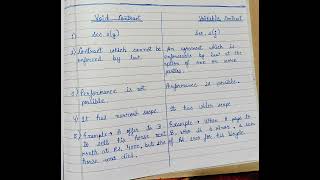 Void Contract
Voidable Contract
1) Sec 2(j)
Sec. 2(i)
2) Contract which cannot be
enforced by law.
An agreement which is
enforceable by law at the
option of one or more
parties.
3) Performance is not
possible.
Performance is possible.
4) It has narrower scope.
It has wider scope
5) Example → A offer to B
to sell his horse next
month at Rs. 4000, but the
horse was died.
Example → When A pays to
B, who is a
of Rs 200 for his